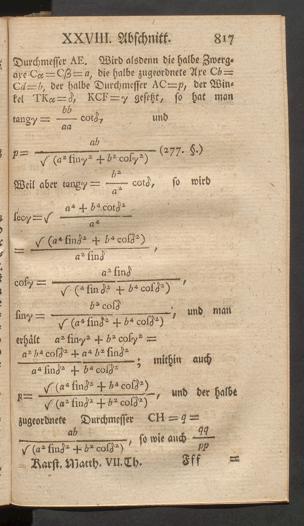 XXVIII. Abschnitt. 817
Durchmesser AE. Wird alsdenn die halbe Zwerg-
axe Cα=Cβ=a, die halbe zugeordnete Axe Cb=
Cd=b, der halbe Durchmesser AC=p, der Win-
kel TKα=δ, KCF=γ gesetzt, so hat man
tangγ = bb/aa cotδ, und
p = ab/√(a² sinγ² + b² cosγ²) (277. §.)
Weil aber tangγ = b²/a² cotδ, so wird
secγ=√ (a⁴ + b⁴ cotδ²)/a⁴
= √(a⁴ sinδ² + b⁴ cosδ²)/(a² sinδ),
cosγ= a² sinδ/√(a⁴ sinδ² + b⁴ cosδ²),
sinγ= b² cosδ/√(a⁴ sinδ² + b⁴ cosδ²); und man
erhält a² sinγ² + b² cosγ² =
(a² b⁴ cosδ² + a⁴ b² sinδ²)/(a⁴ sinδ² + b⁴ cosδ²); mithin auch
p= √(a⁴ sinδ² + b⁴ cosδ²)/√(a² sinδ² + b² cosδ²), und der halbe
zugeordnete Durchmesser CH = q =
ab/√(a⁴ sinδ² + b⁴ cosδ²), so wie auch qq/pp
Karst. Matth. VII. Th. Fff =